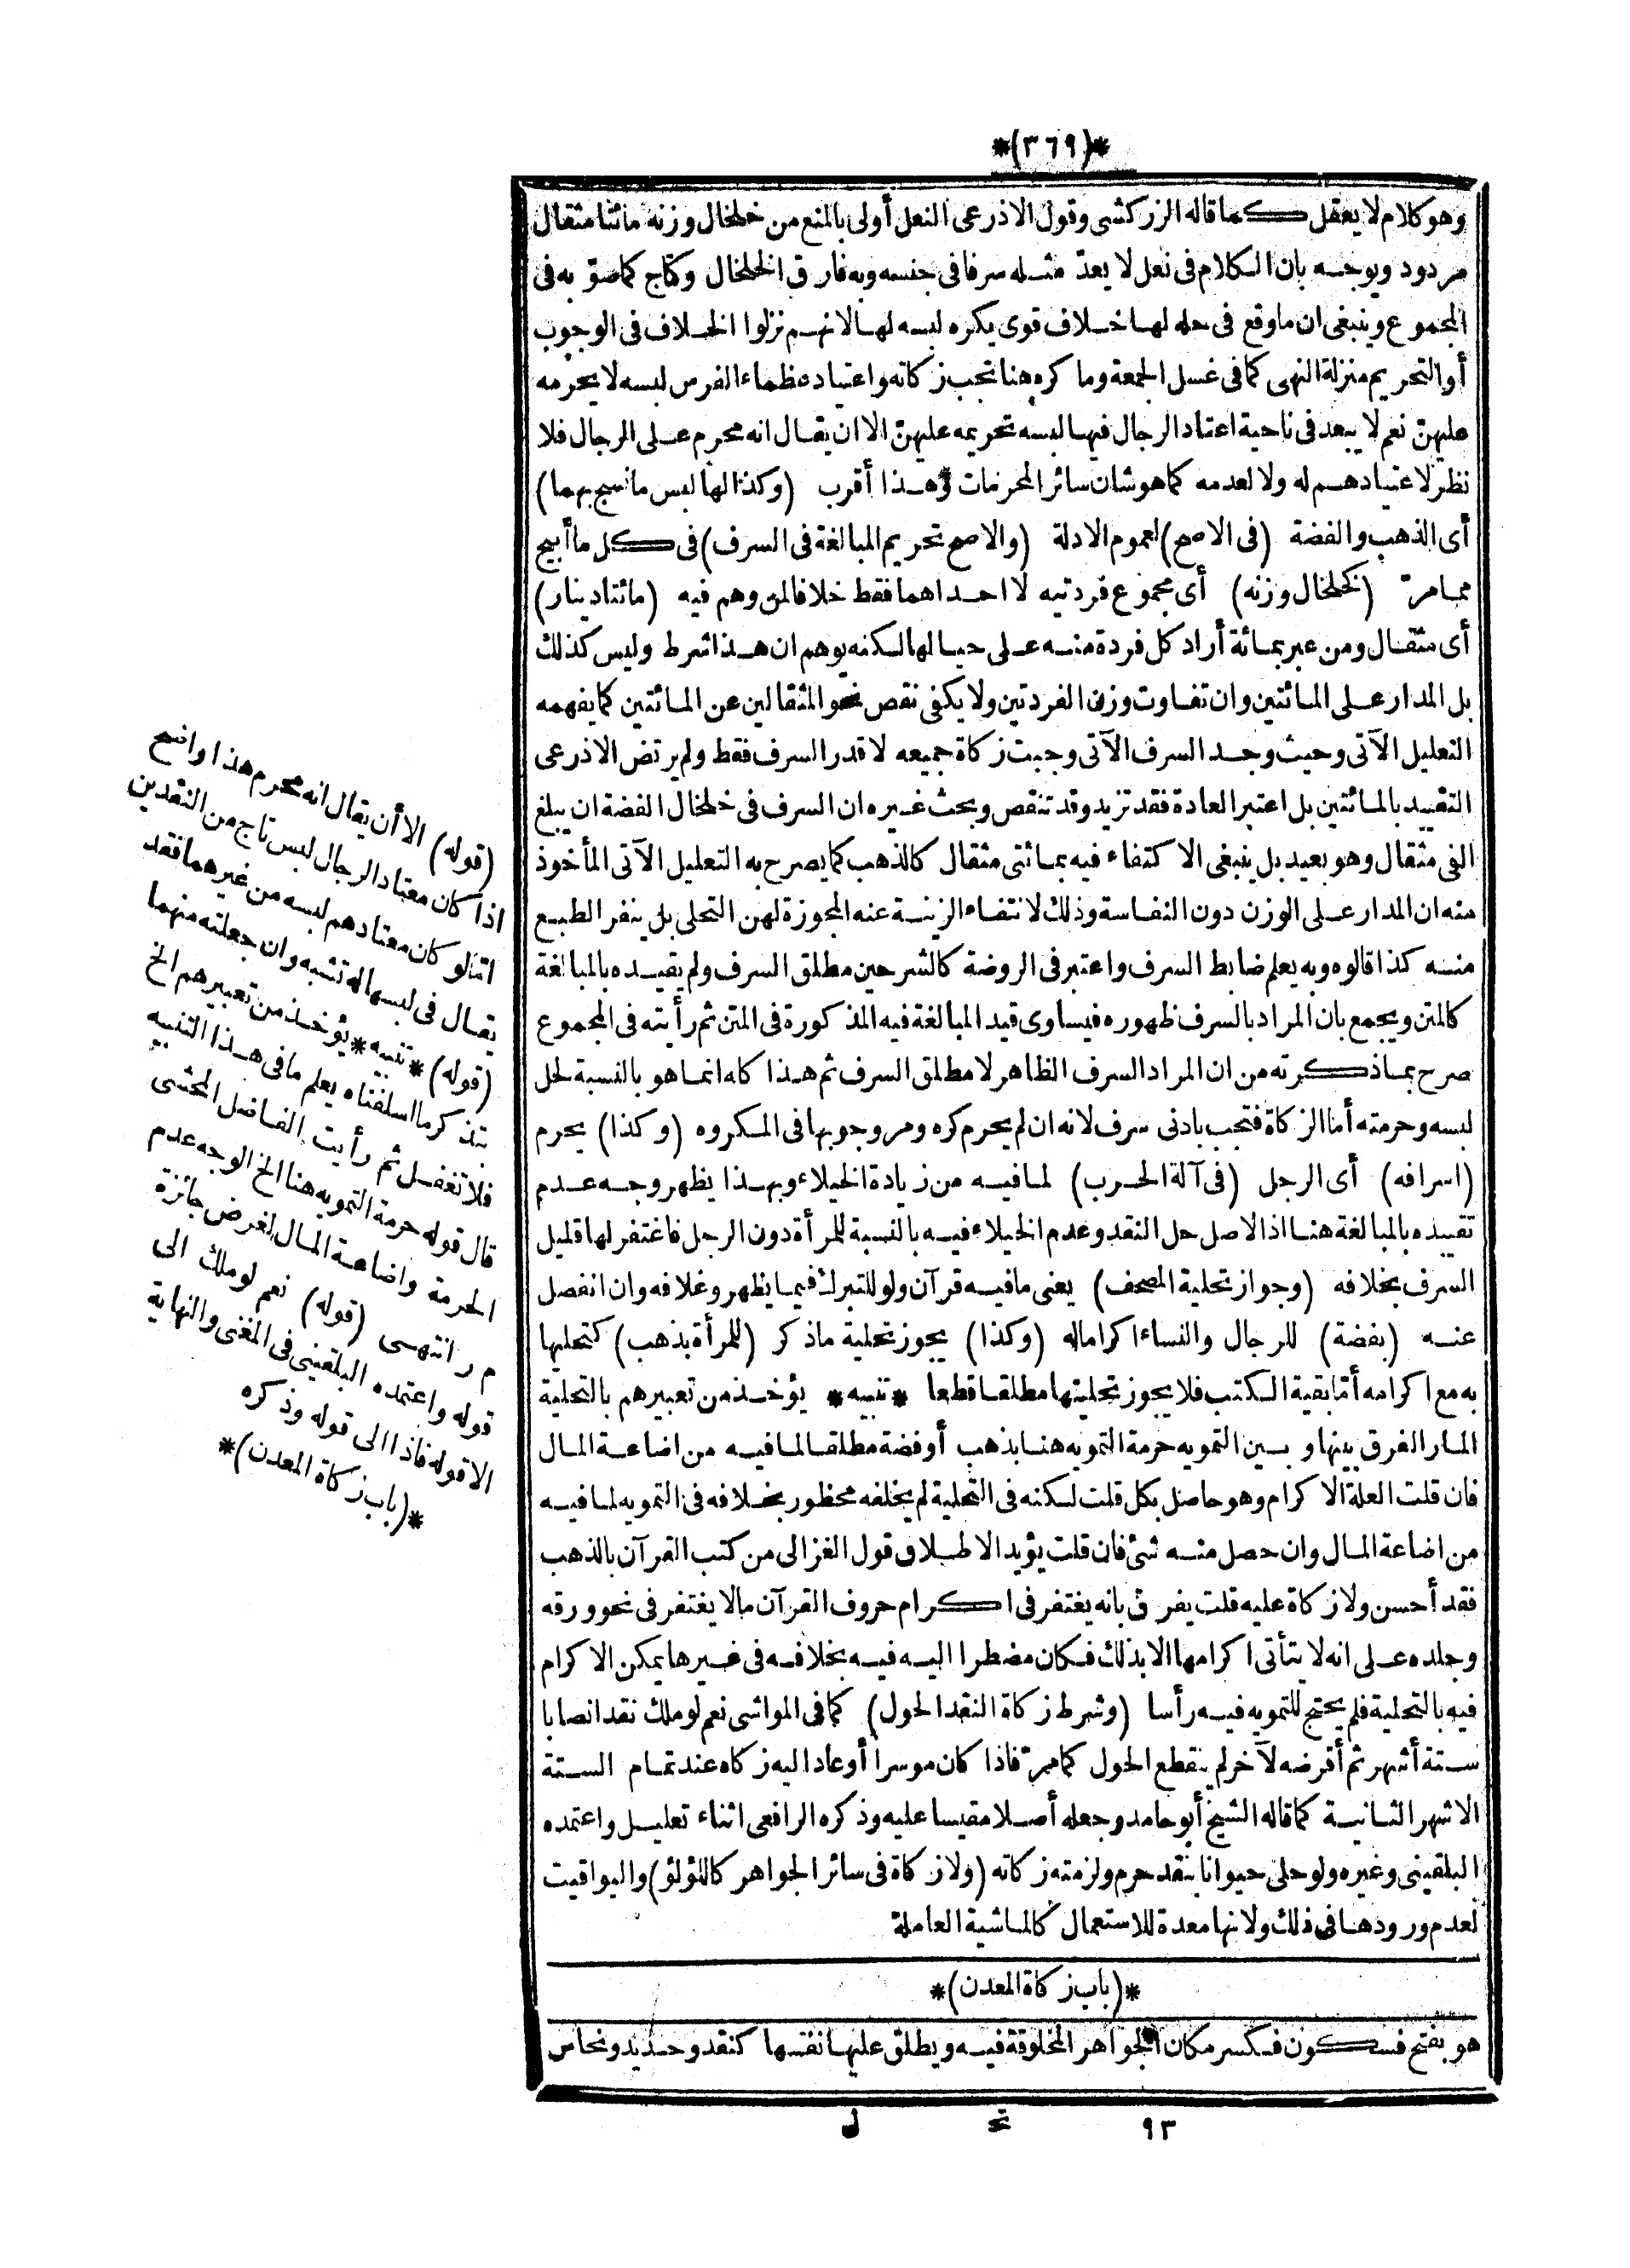 *(٣٦٩)*
وهو كلام لا يعقل كما قاله الزركشى وقول الاذرعى النعل أولى بالمنع من خلخال وزنه مائتا مثقال
مردود ويوجه بان الكلام فى نعل لا يعدّ مثله سرفا فى جنسه وبه فارق الخلخال وكتاج كما صوّبه فى
المجموع وينبغى ان ما وقع فى حله لها خلاف قوى يكره لبسه لها لانهم نزلوا الخلاف فى الوجوب
أو التحريم منزلة النهى كما فى غسل الجمعة وما كره هنا تجب زكاته واعتياد عظماء الفرس لبسه لا يحرمه
عليهنّ نعم لا يبعد فى ناحية اعتاد الرجال فيها لبسه تحريمه عليهنّ الا ان يقال انه محرم على الرجال فلا
نظر لاعتيادهم له ولا لعدمه كما هو شان سائر المحرمات وهذا أقرب (وكذا لها لبس ما نسج بهما)
أى الذهب والفضة (فى الاصح) لعموم الادلة (والاصح تحريم المبالغة فى السرف) فى كل ما أبيح
مما مرّ (كخلخال وزنه) أى مجموع فردتيه لا احداهما فقط خلافا لمن وهم فيه (مائتا دينار)
أى مثقال ومن عبر بمائة أراد كل فردة منه على حيالها لكنه يوهم ان هذا شرط وليس كذلك
بل المدار على المائتين وان تفاوت وزن الفردتين ولا يكفى نقص نحو المثقالين عن المائتين كما يفهمه
التعليل الآتى وحيث وجد السرف الآتى وجبت زكاة جميعه لا قدر السرف فقط ولم يرتض الاذرعى
التقييد بالمائتين بل اعتبر العادة فقد تزيد وقد تنقص وبحث غيره ان السرف فى خلخال الفضة ان يبلغ
الفى مثقال وهو بعيد بل ينبغى الاكتفاء فيه بمائتى مثقال كالذهب كما يصرح به التعليل الآتى المأخوذ
منه ان المدار على الوزن دون النفاسة وذلك لانتفاء الزينة عنه المجوزة لهن التحلى بل ينفر الطبع
منه كذا قالوه وبه يعلم ضابط السرف واعتبر فى الروضة كالشرحين مطلق السرف ولم يقيده بالمبالغة
كالمتن ويجمع بان المراد بالسرف ظهوره فيساوى قيد المبالغة فيه المذكورة فى المتن ثم رأيته فى المجموع
صرح بما ذكرته من ان المراد السرف الظاهر لا مطلق السرف ثم هذا كله انما هو بالنسبة لحل
لبسه وحرمته أما الزكاة فتجب بادنى سرف لانه ان لم يحرم كره ومر وجوبها فى المكروه (وكذا) يحرم
(اسرافه) أى الرجل (فى آلة الحرب) لما فيه من زيادة الخيلاء وبهذا يظهر وجه عدم
تقييده بالمبالغة هنا اذ الاصل حل النقد وعدم الخيلاء فيه بالنسبة للمرأة دون الرجل فاغتفر لها قليل
السرف بخلافه (وجواز تحلية المصحف) يعنى ما فيه قرآن ولو للتبرك فيما يظهر وغلافه وان انفصل
عنه (بفضة) للرجال والنساء اكراما له (وكذا) يجوز تحلية ما ذكر (للمرأة بذهب) كتحليها
به مع اكرامه أمّا بقية الكتب فلا يجوز تحليتها مطلقا قطعا *تنبيه* يؤخذ من تعبيرهم بالتحلية
المار الفرق بينها وبين التمويه حرمة التمويه هنا بذهب أو فضة مطلقا لما فيه من اضاعة المال
فان قلت العلة الاكرام وهو حاصل بكل قلت لكنه فى التحلية لم يخلفه محظور بخلافه فى التمويه لما فيه
من اضاعة المال وان حصل منه شئ فان قلت يؤيد الاطلاق قول الغزالى من كتب القرآن بالذهب
فقد أحسن ولا زكاة عليه قلت يفرق بانه يغتفر فى اكرام حروف القرآن ما لا يغتفر فى نحو ورقه
وجلده على انه لا يتأتى اكرامها الا بذلك فكان مضطرا اليه فيه بخلافه فى غيرها يمكن الاكرام
فيه بالتحلية فلم يحتج للتمويه فيه رأسا (وشرط زكاة النقد الحول) كما فى المواشى نعم لو ملك نقدا نصابا
ستة أشهر ثم أقرضه لآخر لم ينقطع الحول كما مرّ فاذا كان موسرا أو عاد اليه زكاه عند تمام الستة
الاشهر الثانية كما قاله الشيخ أبو حامد وجعله أصلا مقيسا عليه وذكره الرافعى اثناء تعليل واعتمده
البلقينى وغيره ولو حلى حيوانا بنقد حرم ولزمته زكاته (ولا زكاة فى سائر الجواهر كاللؤلؤ) واليواقيت
لعدم ورودها فى ذلك ولانها معدة للاستعمال كالماشية العاملة
*(باب زكاة المعدن)*
هو بفتح فسكون فكسر مكان الجواهر المخلوقة فيه ويطلق عليها نفسها كنقد وحديد ونحاس
٩٣ تحـ ل
(قوله) الا أن يقال انه محرم هذا واضح
اذا كان معتاد الرجال لبس تاج من النقدين
اتالو كان معتادهم لبسه من غيرهما فقد
يقال فى لبسها له تشبه وان جعلته منهما
(قوله) *تنبيه* يؤخذ من تعبيرهم الخ
بتذكر ما اسلفناه يعلم ما فى هذا التنبيه
فلا تغفل ثم رأيت الفاضل المحشى
قال قوله حرمة التمويه هنا الخ الوجه عدم
الحرمة واضاعة المال لغرض جائزة
م ر انتهى (قوله) نعم لو ملك الى
قوله واعتمده البلقينى فى المغنى والنهاية
الا قوله فاذا الى قوله وذكره
*(باب زكاة المعدن)*